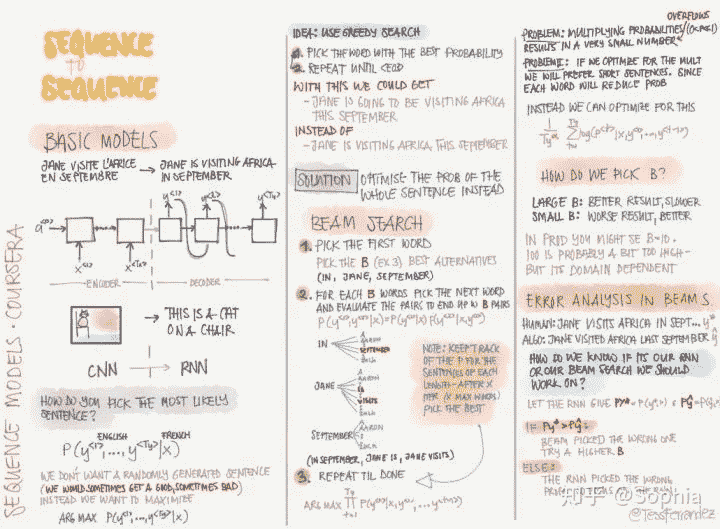 SEQUENCE
TO
SEQUENCE
BASIC MODELS
JANE VISITE L'AFRICE
EN SEPTEMBRE
JANE IS VISITING AFRICA
IN SEPTEMBER
y<1>
y<2>
y<Ty>
a<0>
x<1>
x<Tx>
ENCODER
DECODER
THIS IS A CAT
ON A CHAIR
CNN
RNN
HOW DO YOU PICK THE MOST LIKELY
SENTENCE?
ENGLISH
FRENCH
P(y<1>,...,y<Ty>|x)
WE DON'T WANT A RANDOMLY GENERATED SENTENCE
(WE WOULD SOMETIMES GET A GOOD, SOMETIMES BAD)
INSTEAD WE WANT TO MAXIMIZE
ARG MAX P(y<1>,...,y<Ty>|x)
SEQUENCE MODELS · COURSERA
IDEA: USE GREEDY SEARCH
1. PICK THE WORD WITH THE BEST PROBABILITY
2. REPEAT UNTIL <EOS>
WITH THIS WE COULD GET
- JANE IS GOING TO BE VISITING AFRICA
THIS SEPTEMBER
INSTEAD OF
- JANE IS VISITING AFRICA THIS SEPTEMBER
SOLUTION
OPTIMISE THE PROB OF THE
WHOLE SENTENCE INSTEAD
BEAM SEARCH
1. PICK THE FIRST WORD
PICK THE B (EX 3) BEST ALTERNATIVES
(IN, JANE, SEPTEMBER)
2. FOR EACH B WORDS PICK THE NEXT WORD
AND EVALUATE THE PAIRS TO END UP W B PAIRS
P(y<1>,y<2>|x)=P(y<1>|x)P(y<2>|x,y<1>)
IN
AARON
SEPTEMBER
ZULU
JANE
AARON
IS
VISITS
ZULU
SEPTEMBER
AARON
ZULU
NOTE: KEEP TRACK
OF THE P FOR THE
SENTENCES OF EACH
LENGTH - AFTER X
ITER (X MAX WORDS)
PICK THE BEST
(IN SEPTEMBER, JANE IS, JANE VISITS)
3. REPEAT TIL DONE
PROBLEM: MULTIPLYING PROBABILITIES (0<P<1)
OVERFLOWS
RESULTS IN A VERY SMALL NUMBER
PROBLEM II: IF WE OPTIMIZE FOR THE MULT
WE WILL PREFER SHORT SENTENCES. SINCE
EACH WORD WILL REDUCE PROB
INSTEAD WE CAN OPTIMIZE FOR THIS
HOW DO WE PICK B?
LARGE B: BETTER RESULT, SLOWER
SMALL B: WORSE RESULT, BETTER
IN PROD YOU MIGHT SE B=10.
100 IS PROBABLY A BIT TOO HIGH -
BUT ITS DOMAIN DEPENDENT
ERROR ANALYSIS IN BEAM S.
HUMAN: JANE VISITS AFRICA IN SEPT... y*
ALGO: JANE VISITED AFRICA LAST SEPTEMBER ŷ
HOW DO WE KNOW IF ITS OUR RNN
OR OUR BEAM SEARCH WE SHOULD
WORK ON?
IF Py*>Pŷ:
BEAM PICKED THE WRONG ONE
TRY A HIGHER B
ELSE:
THE RNN PICKED THE WRONG
知乎 @Sophia
@TessFerrandez